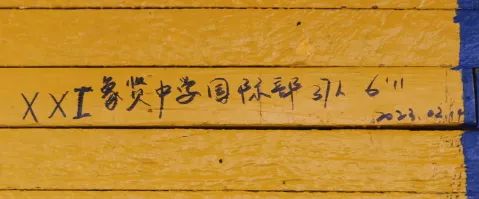 XXI 象贤中学国际部 31人 6'11
2023.02.19